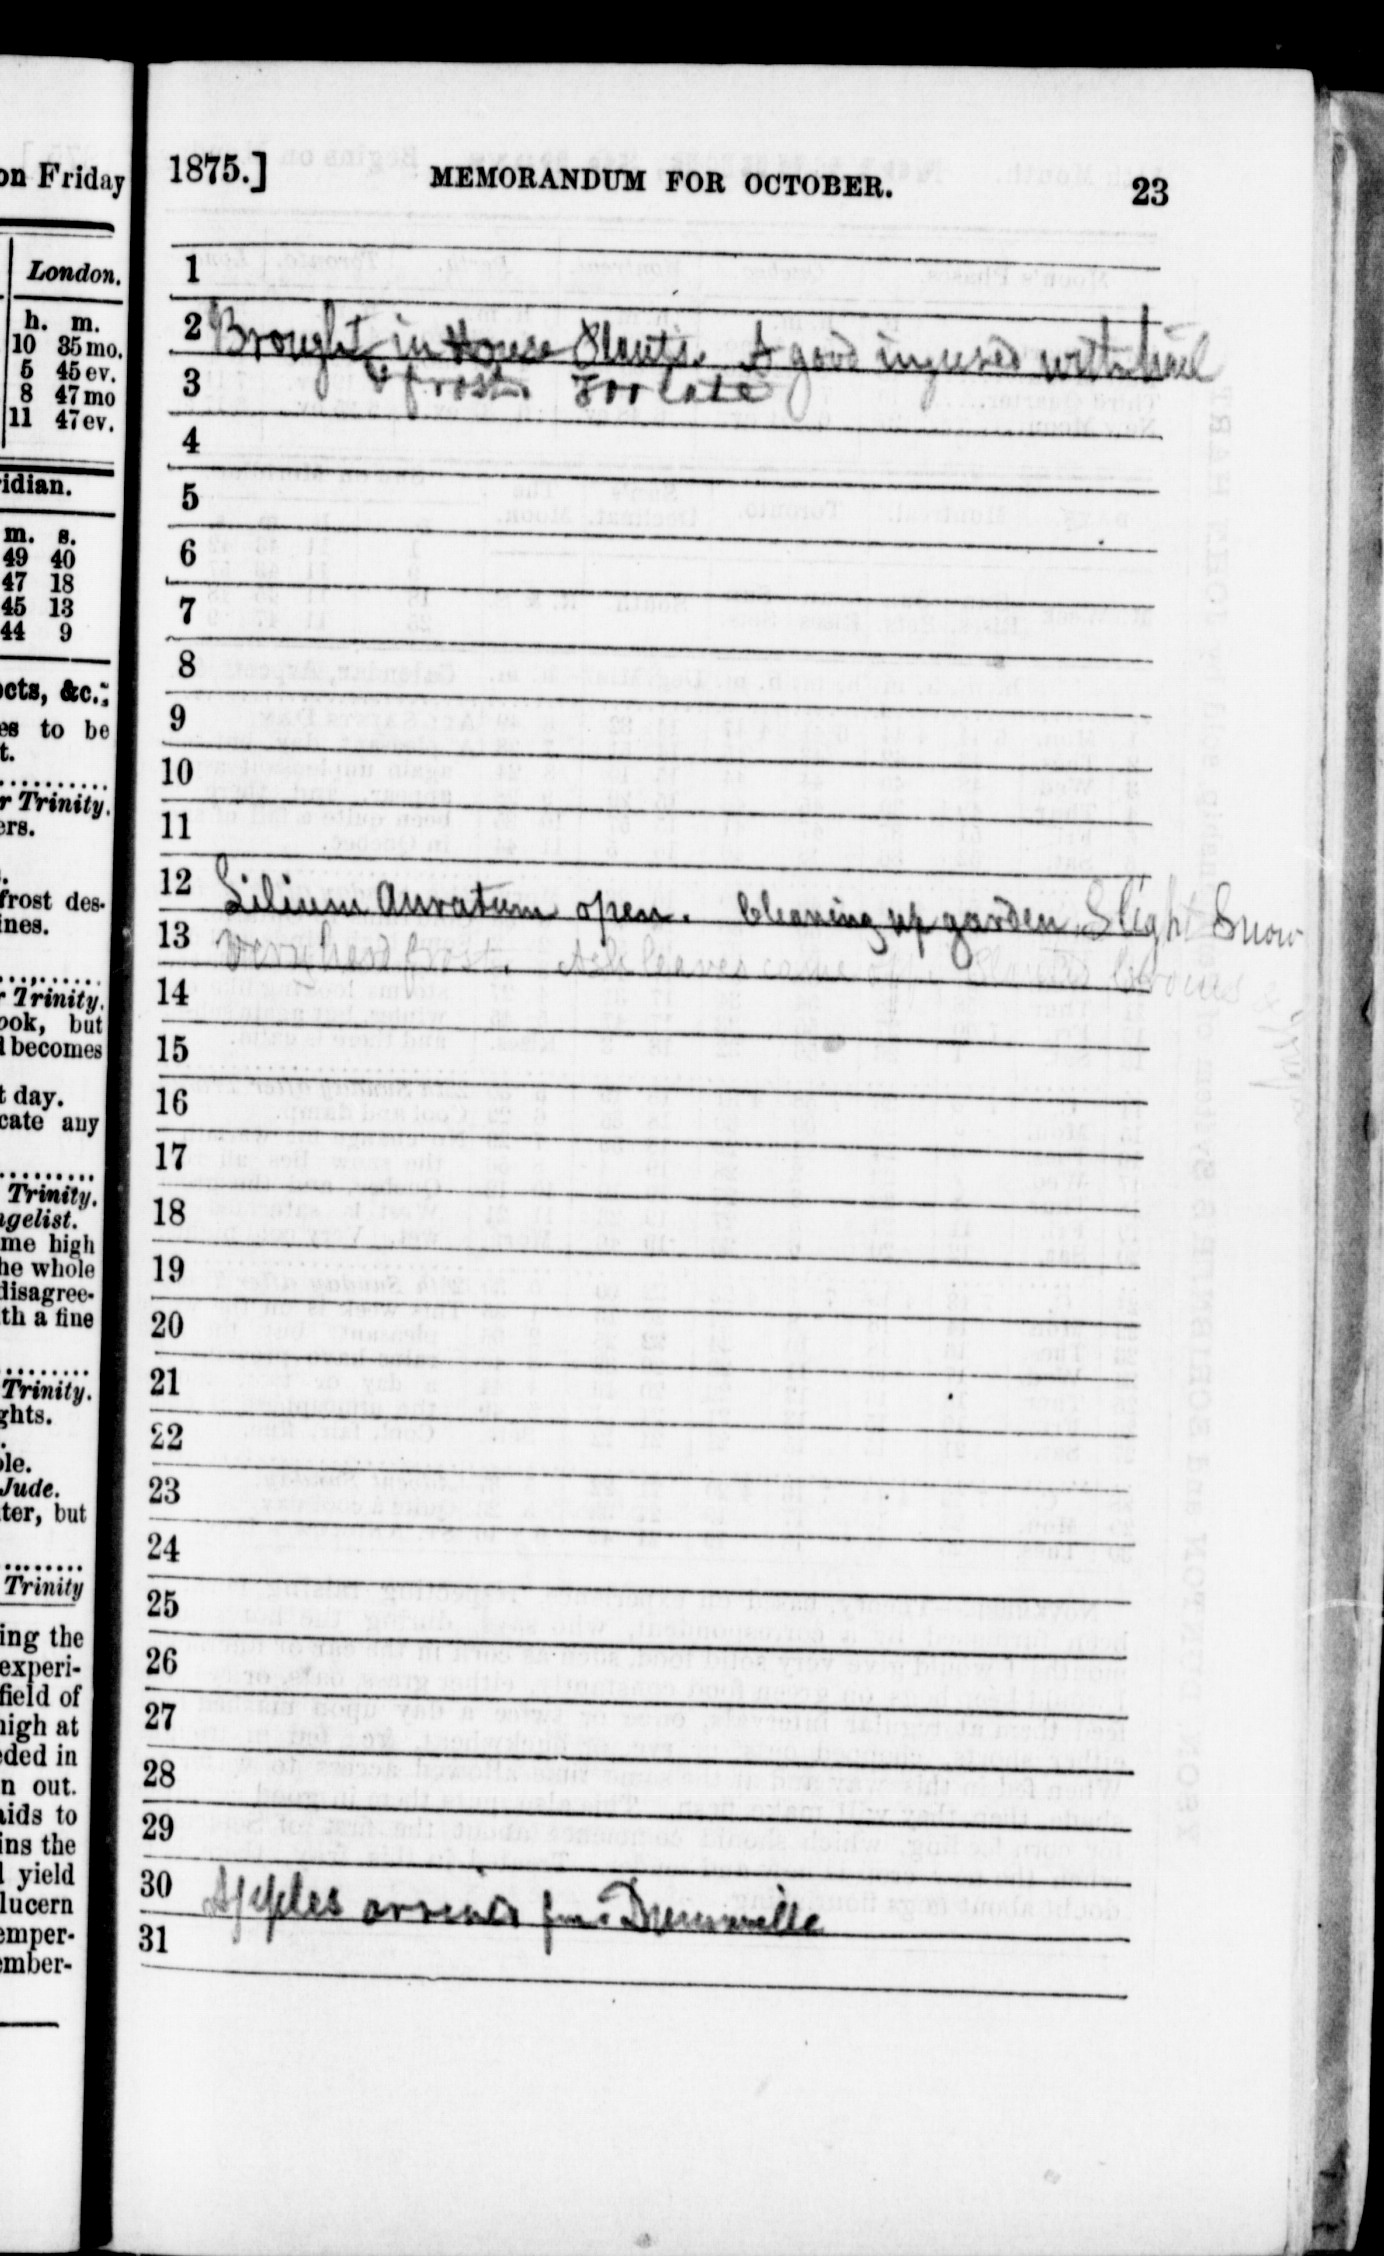 on Friday
London.
h. m.
10 35 mo.
5 45 ev.
8 47 mo
11 47 ev.
idian.
m. s.
49 40
47 18
45 13
44 9
cts, &c.;
es to be
t.
r Trinity.
ers.
frost des-
ines.
r Trinity.
ook, but
becomes
t day.
cate any
Trinity.
gelist.
me high
he whole
disagree-
th a fine
Trinity.
ghts.
le.
Jude.
ter, but
Trinity
ing the
experi-
field of
high at
ded in
n out.
ids to
ins the
yield
lucern
emper-
mber-
1875.] MEMORANDUM FOR OCTOBER. 23
1
2 Brought in House Plants. A good injured with
3 & frost. Too late
4
5
6
7
8
9
10
11
12 Lilium Auratum open. Cleaning up garden Slight Snow
13 Very hard frost. Ash leaves came off.
14
15
16
17
18
19
20
21
22
23
24
25
26
27
28
29
30 Apples arrived from Dunnville
31